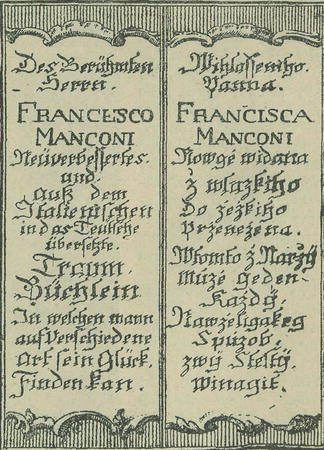 Des Berühmten
Herrn.
FRANCESCO
MANCONI
Neüverbessertes.
und.
auß dem
Italienischen
in das Teutsche
übersetzte.
Traum.
Büchlein.
In welchen mann
auf Verschiedene
art sein Glück.
Finden kan.
Panna.
FRANCISCA
MANCONI
Nowgě widana
z wlazkiho
Do žežkiho
Przenežena.
Wtomto ž Narzy
Muže geden
Každý.
Nawželigakeg
Spuzob.
zwý Stěstý.
Winagit.